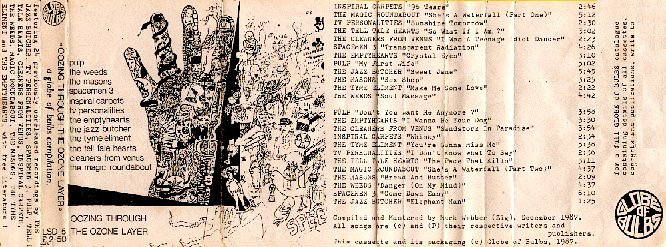 featuring 24 previously unreleased recordings by THE
JAZZ BUTCHER, TV PERSONALITIES, SPACEMEN 3, PULP, TELL
TALE HEARTS, CLEANERS FROM VENUS, INSPIRAL CARPETS,
THE WEEDS, MAGIC ROUNDABOUT, THE MASONS, THE TYME
ELEMENT and THE EMPTYHEARTS with free literature!
a globe of bulbs compilation.
"OOZING THROUGH THE OZONE LAYER"
LSD 5
£2·50
pulp
the weeds
the masons
spacemen 3
inspiral carpets
tv personalities
the emptyhearts
the jazz butcher
the tyme element
the tell tale hearts
cleaners from venus
the magic roundabout
OOZING THROUGH
THE OZONE LAYER
INSPIRAL CARPETS "96 Tears" 2:46
THE MAGIC ROUNDABOUT "She's A Waterfall (Part One)" 5:12
TV PERSONALITIES "Sunshine Tomorrow" 2:30
THE TELL TALE HEARTS "So What If I Am?" 3:02
THE CLEANERS FROM VENUS "I Was A Teenage Idiot Dancer" 2:23
SPACEMEN 3 "Transparent Radiation" 4:26
THE EMPTYHEARTS "Crystal Eyen" 3:10
PULP "My First Wife" 3:02
THE JAZZ BUTCHER "Sweet Jane" 5:43
THE MASONS "Sex Shop" 3:25
THE TYME ELEMENT "Make Me Some Love" 2:22
THE WEEDS "Soul Massage" 2:42
PULP "Don't You Want Me Anymore ?" 3:58
THE EMPTYHEARTS "I Wanna Be Your Dog" 3:30
THE CLEANERS FROM VENUS "Sandstorm In Paradise" 3:54
INSPIRAL CARPETS "Whiskey" 2:34
THE TYME ELEMENT "You're Gonna Miss Me" 3:36
TV PERSONALITIES "I Don't Know What To Say" 2:36
THE TELL TALE HEARTS "The Face That Kills" 3:11
THE MAGIC ROUNDABOUT "She's A Waterfall (Part Two)" 3:37
THE MASONS "Bread And Butter" 2:09
THE WEEDS "Danger (On My Mind)" 3:37
SPACEMEN 3 "Come Down Easy" 5:10
THE JAZZ BUTCHER "Elephant Man" 1:25
Compiled and Mastered by Mark Webber (Zig), December 1987.
All songs are (c) and (P) their respective writers and
publishers.
This cassette and its packaging (c) Globe of Bulbs, 1987.
for full GLOBE OF BULBS catalogue
containing details of all cassettes,
concerts and publications, write to
GLOBE OF BULBS